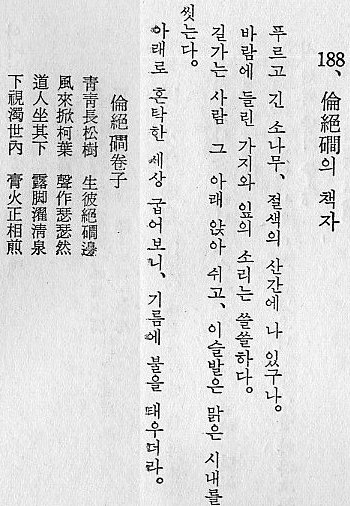 188、倫絕磵의 책자
푸르고 긴 소나무、절색의 산간에 나 있구나。
바람에 들린 가지와 잎의 소리는 쓸쓸하다。
길가는 사람 그 아래 앉아 쉬고、이슬발은 맑은 시내를
씻는다。
아래로 혼탁한 세상 굽어보니、기름에 불을 태우더라。
倫絕磵卷子
靑靑長松樹 生彼絕磵邊
風來掀柯葉 聲作瑟瑟然
道人坐其下 露脚濯清泉
下視濁世內 膏火正相煎